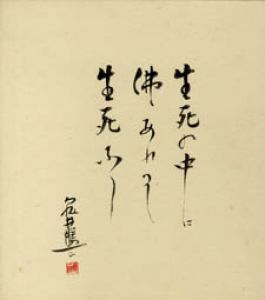 生死の中に
佛あれば
生死なし